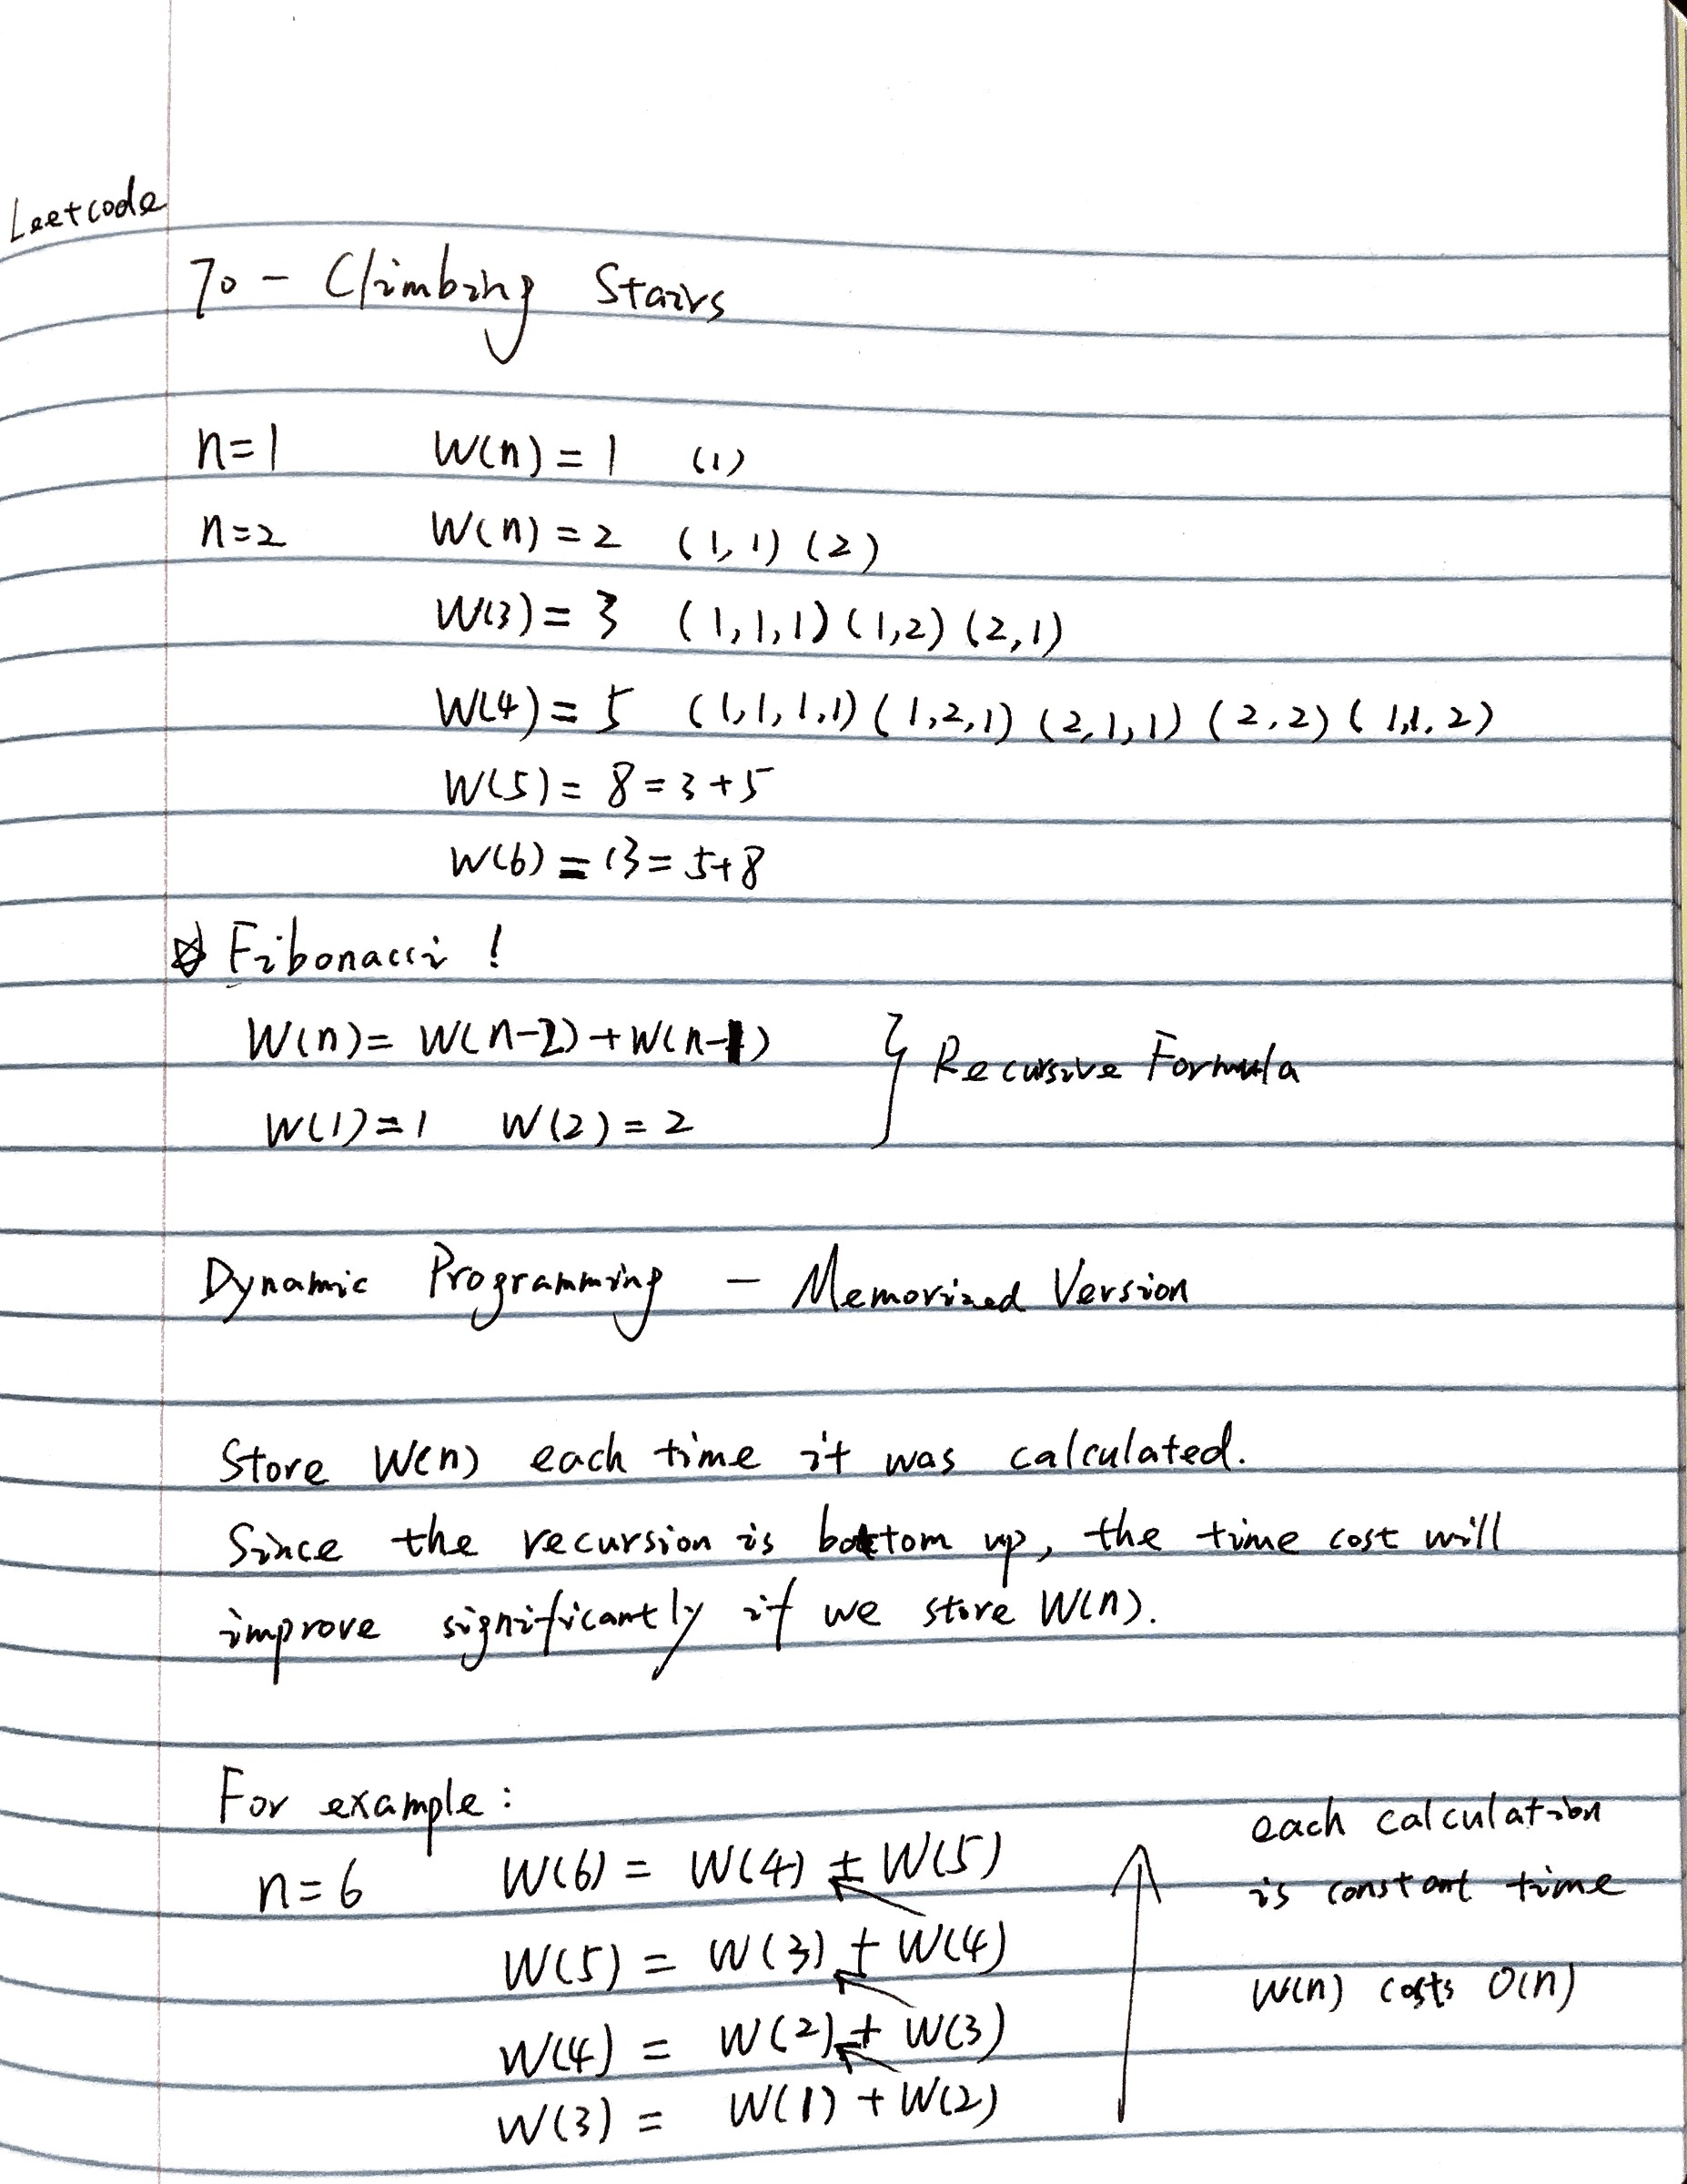 Leetcode
70 - Climbing Stairs
n=1 W(n) = 1 (1)
n=2 W(n) = 2 (1,1) (2)
W(3) = 3 (1,1,1) (1,2) (2,1)
W(4) = 5 (1,1,1,1) (1,2,1) (2,1,1) (2,2) (1,1,2)
W(5) = 8 = 3+5
W(6) = 13 = 5+8
☆ Fibonacci !
W(n) = W(n-2) + W(n-1)
} Recursive Formula
W(1)=1 W(2)=2
Dynamic Programming - Memorized Version
Store W(n) each time it was calculated.
Since the recursion is bottom up, the time cost will
improve significantly if we store W(n).
For example:
n=6 W(6) = W(4) + W(5)
W(5) = W(3) + W(4)
W(4) = W(2) + W(3)
W(3) = W(1) + W(2)
each calculation
is constant time
W(n) costs O(n)